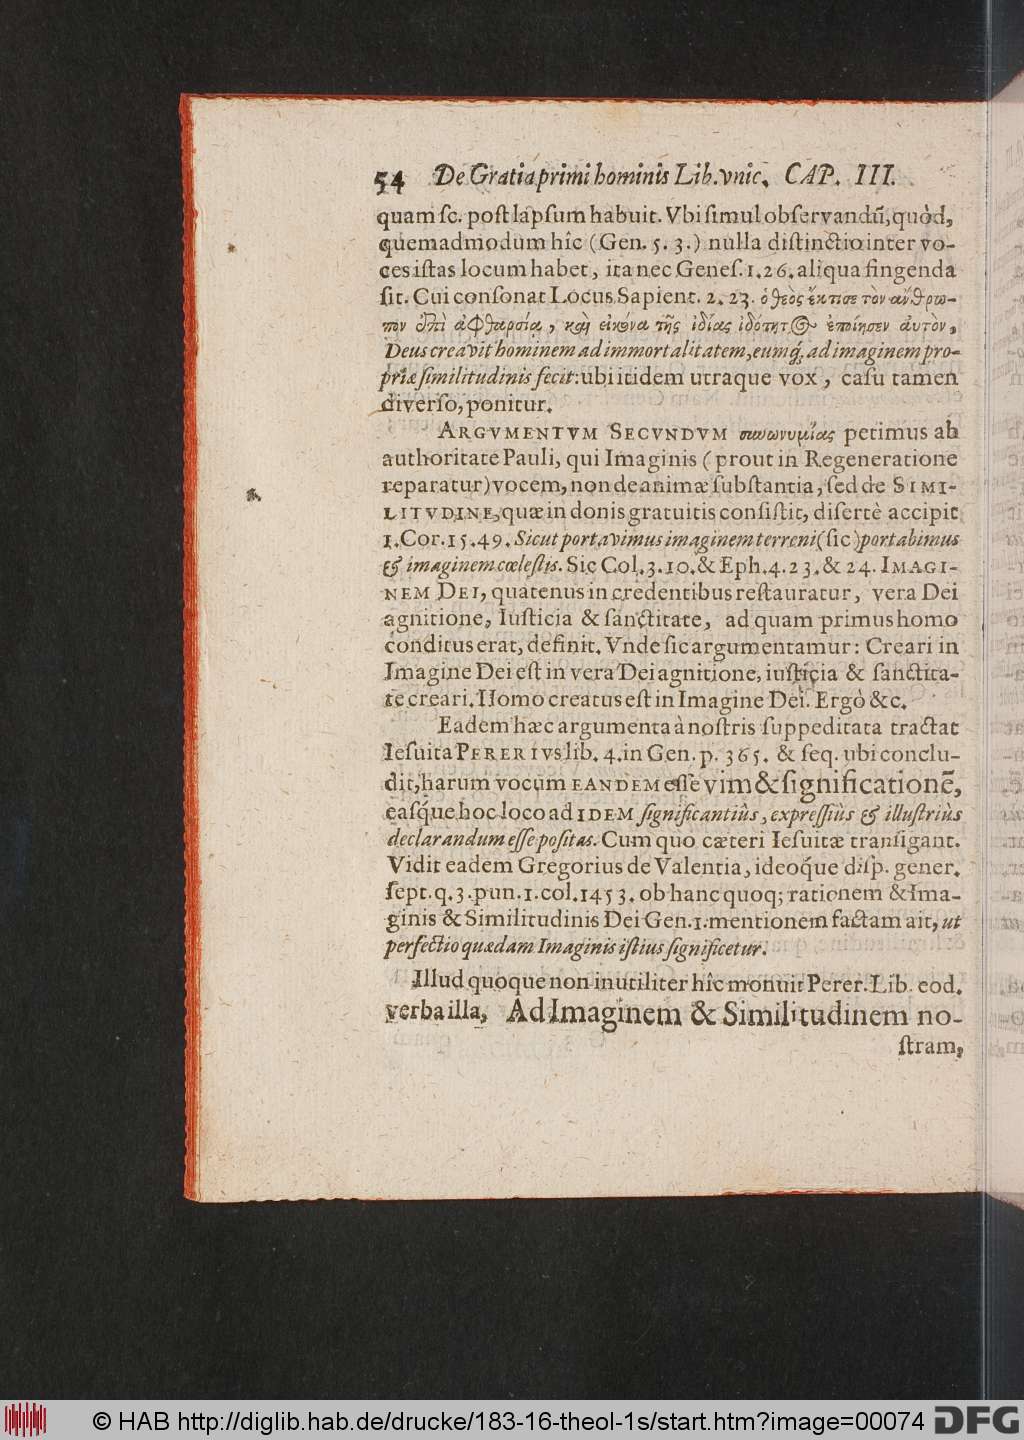 54 De Gratia primi hominis Lib. vnic. CAP. III.
quam sc. post lapsum habuit. Vbi simul observandũ, quòd,
quemadmodum hîc (Gen. 5. 3.) nulla distinctio inter vo-
ces istas locum habet, ita nec Genes. 1. 26. aliqua fingenda
sit. Cui consonat Locus Sapient. 2. 23. ὁ θεὸς ἔκτισε τὸν ἄνθρω-
πον ἐπὶ ἀφθαρσίᾳ, καὶ εἰκόνα τῆς ἰδίας ἰδότητος ἐποίησεν ἀυτὸν,
Deus creavit hominem ad immortalitatem, eumq́; ad imaginem pro-
priæ similitudinis fecit: ubi itidem utraque vox, casu tamen
diverso, ponitur.
ARGVMENTVM SECVNDVM συνωνυμίας petimus ab
authoritate Pauli, qui Imaginis (prout in Regeneratione
reparatur) vocem, non de animæ substantia, sed de SIMI-
LITVDINE, quæ in donis gratuitis consistit, disertè accipit
1. Cor. 15. 49. Sicut portavimus imaginem terreni (sic) portabimus
& imaginem cœlestis. Sic Col. 3. 10. & Eph. 4. 23. & 24. IMAGI-
NEM DEI, quatenus in credentibus restauratur, vera Dei
agnitione, Iusticia & sanctitate, ad quam primus homo
conditus erat, definit. Vnde sic argumentamur: Creari in
Imagine Dei est in vera Dei agnitione, iusticia & sanctita-
te creari. Homo creatus est in Imagine Dei. Ergò &c.
Eadem hæc argumenta à nostris suppeditata tractat
Iesuita PERERIVS lib. 4. in Gen. p. 365. & seq. ubi conclu-
dit, harum vocum EANDEM esse vim & significationẽ,
easq́ue hoc loco ad IDEM significantiûs, expressiùs & illustriùs
declarandum esse positas. Cum quo cæteri Iesuitæ transigant.
Vidit eadem Gregorius de Valentia, ideoq́ue disp. gener.
sept. q. 3. pun. 1. col. 1453. ob hanc quoq; rationem & Ima-
ginis & Similitudinis Dei Gen. 1. mentionem factam ait, ut
perfectio quædam Imaginis istius significetur.
Illud quoque non inutiliter hîc monuit Perer. Lib. eod.
verba illa, Ad Imaginem & Similitudinem no-
stram,
© HAB http://diglib.hab.de/drucke/183-16-theol-1s/start.htm?image=00074
DFG